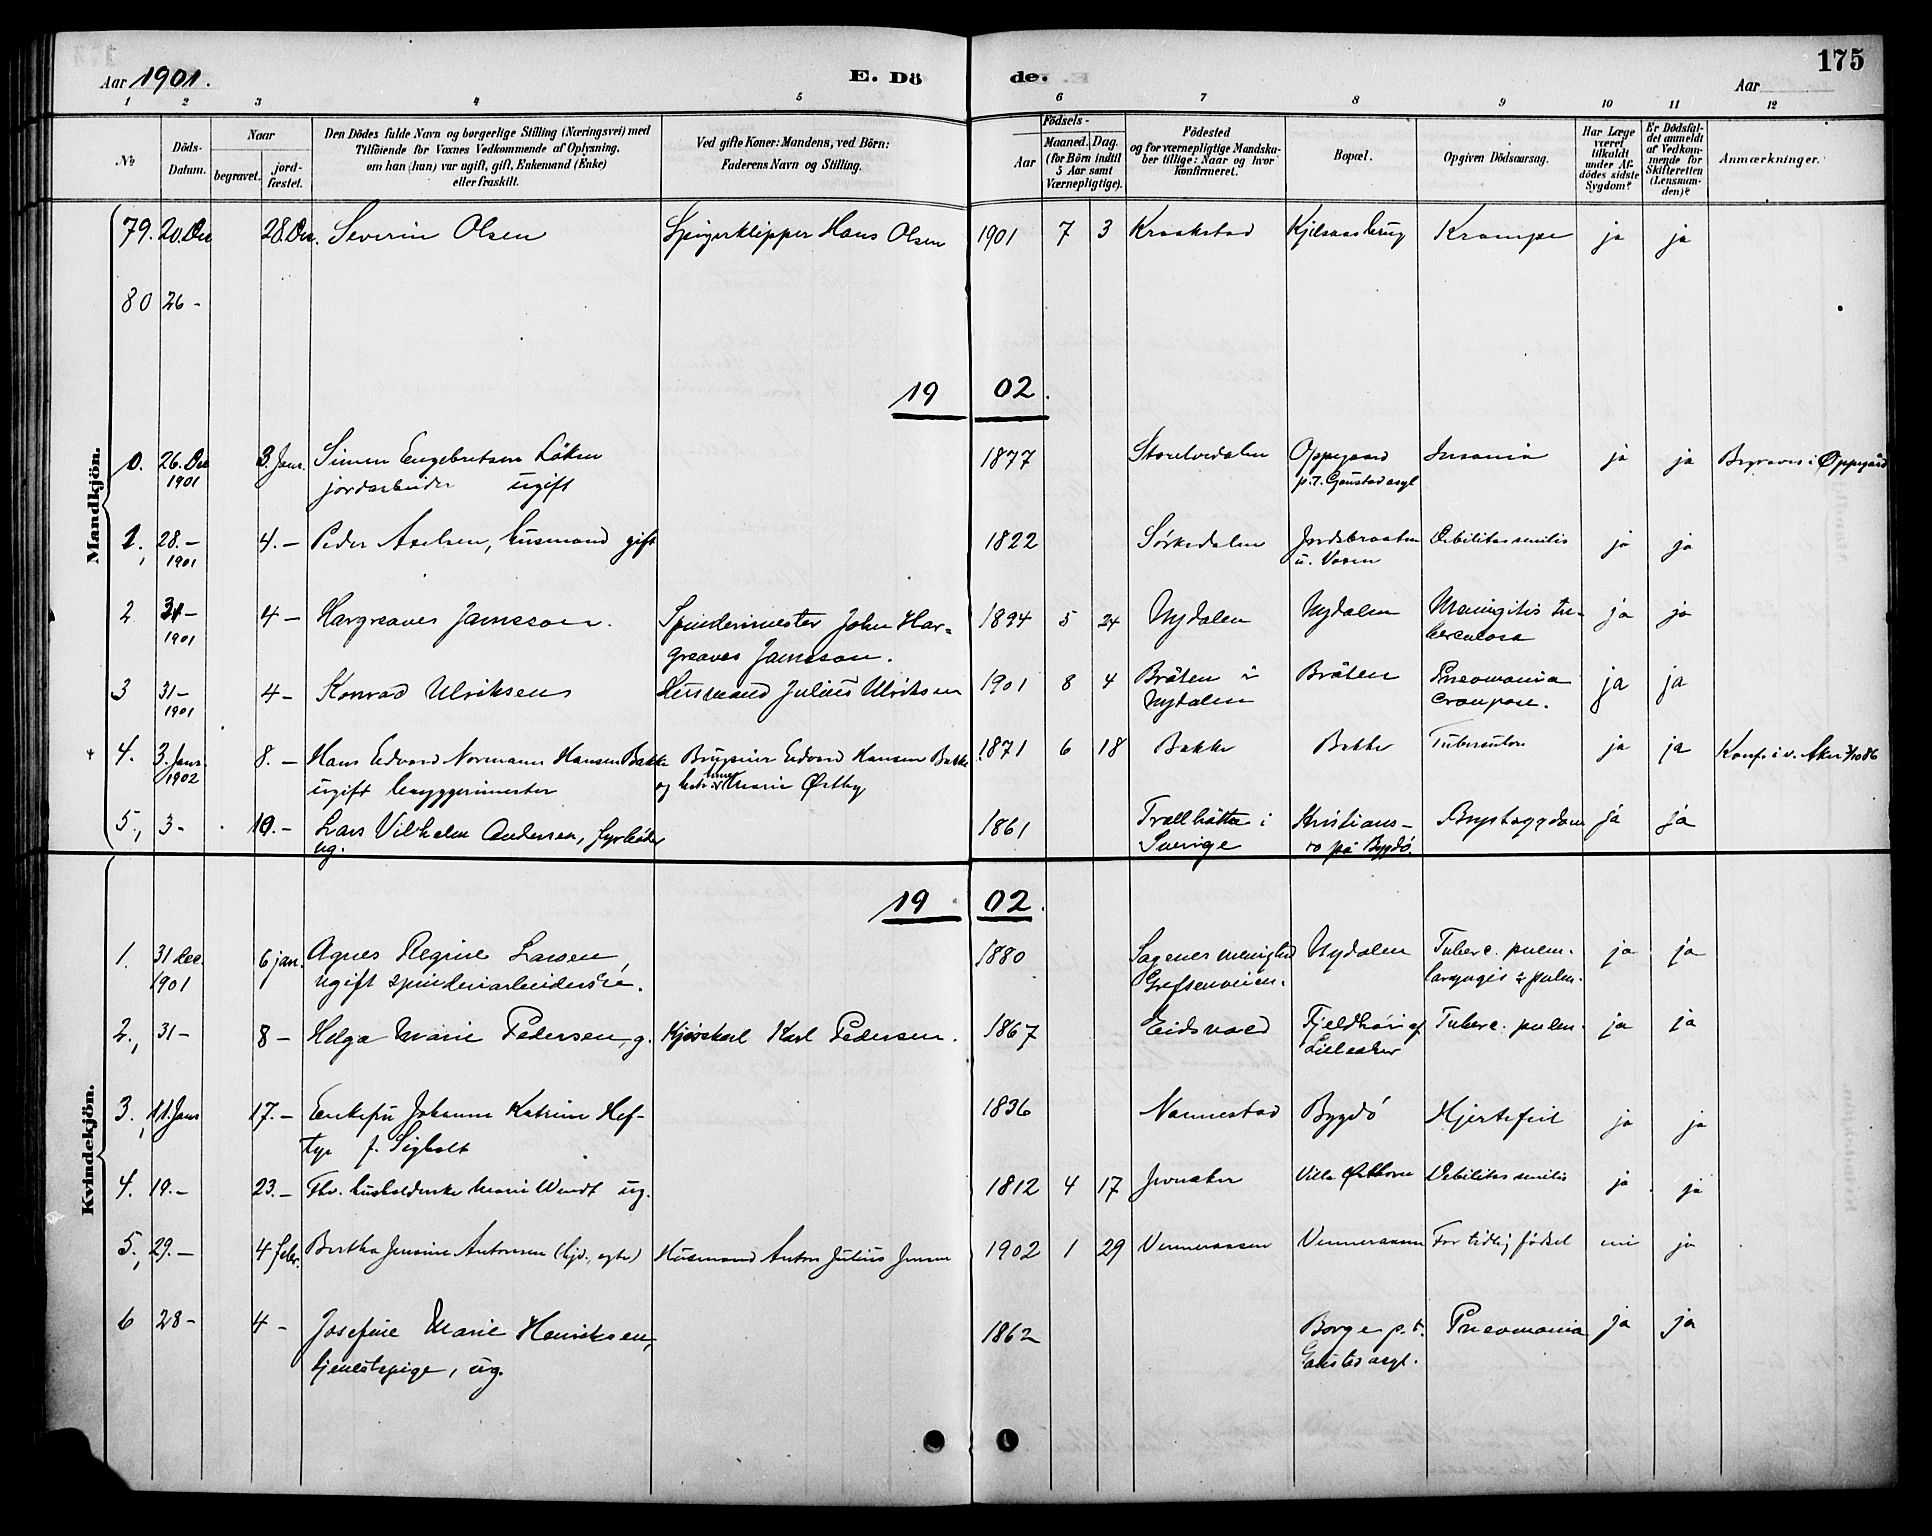 Aar 1901. E. Dö de. 175
Aar
1 2 3 4 5 6 7 8 9 10 11 12
No. Döds-Datum. Naar begravet. jord-fæstet. Den Dödes fulde Navn og borgerlige Stilling (Næringsvei) med Tilföiende for Voxnes Vedkommende af Oplysning, om han (hun) var ugift, gift, Enkemand (Enke) eller fraskilt. Ved gifte Koner: Mandens, ved Börn: Faderens Navn og Stilling. Födsels- Aar Maaned. Dag. (for Börn indtil 5 Aar samt Værnepligtige). Födested og for værnepligtige Mandskaber tillige: Naar og hvor konfirmeret. Bopæl. Opgiven Dödsaarsag. Har Læge været tilkaldt under Afdödes sidste Sygdom? Er Dödsfaldet anmeldt af Vedkommende for Skifteretten (Lensmanden)? Anmærkninger.
Mandkjön.
79. 20. Dec 28. Dec. Severin Olsen Spigerklipper Hans Olsen 1901 7 3 Kraakstad Kjelsaas brug Krampe ja ja
80 26 -
19 02.
0. 26. Dec 3. Jan. Simen Engebretsen Löken 1877 Storelvedalen Oppegaard Insania ja ja Begraves i Oppegård
1901 jordarbeider ugift p.t. Gaustad asyl
1. 28. - 4. - Peder Axelsen, husmand gift 1822 Sörkedalen Jordsbraaten Debilitas senilis ja ja
1901 u. Voxen
2 31 - 4 - Hargreaves Jamesson. Spindemester John Har- 1894 5 24 Nydalen Nydalen Meningitis tu- ja ja
1901 greaves Jamesson. berculosa
3 31 - 4 - Konrad Ulriksen Husmand Julius Ulriksen 1901 8 4 Bråten i Bråten Pneumonia ja ja
1901 Nydalen crouposa.
4. 3. Jan. 8. - Hans Edvard Normann Hansen Bakke Edvard Hansen Bakke 1871 6 18 Bakke Bakke Tuberculose ja ja Konf. i v. Aker 3/10 86
1902 ugift byggmester og hustru Marie Østby
5., 3 - 10. - Lars Vilhelm Andersen, fyrböder 1861 Trollhätta i Kristians- Brystsygdom ja ja
ug. Sverige ro på Bygdö.
Kvindekjön.
19 02.
1. 31 dec. 6 jan. Agnes Regine Larsen, 1880 Sagenes menighed Nydalen Tuberc. pulm. ja ja
1901 ugift spinderiarbeiderske. Grefsenveien. laryngis & pulm.
2., 31 - 8 - Helga Marie Pedersen, g. Kjørekarl Karl Pedersen. 1867 Eidsvold Fjeldhøi pr Tuberc. pulm. ja ja
Lilleaker
3. 11. Jan 17. - Enkefru Johanne Katrine Hef- 1836 Nannestad Bygdö Hjertefeil ja ja
tye f. Sigholt
4. 19. - 23. - Fhv. husholderske Marie Wendt ug. 1812 4 17 Jevnaker Villa Debilitas senilis ja ja
5., 29. - 4 febr. Bertha Jensine Antonsen (hjd., egte) Husmand Anton Julius Jensen 1902 1 29 Vennerassen Vennerassen For tidlig födsel nei ja
6 28 - 4 - Josefine Marie Henriksen, 1862 Borge p.t. Pneumonia ja ja
tjenestepige, ug. Gaustad asyl.